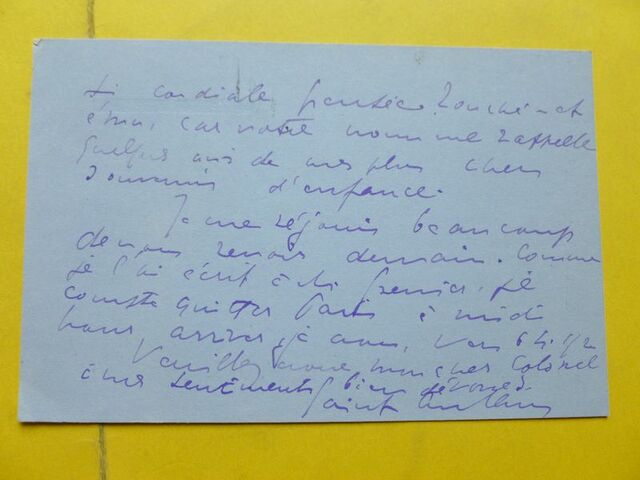 si cordiale pensée. Touché et
ému, car votre nom me rappelle
quelques uns de mes plus chers
souvenirs d'enfance.
Je me réjouis beaucoup
de vous revoir demain. Comme
je l'ai écrit à M. je
compte quitter Paris à midi
pour arriver vers 6 h 1/2
Veuillez mon cher Colonel
à mes sentiments bien dévoués.
Saint